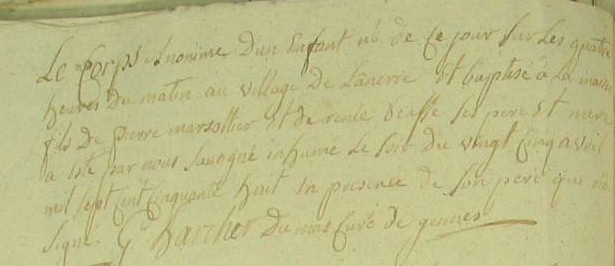 Le Corps Anonime d'un Enfant né de ce jour sur les quatre
heures du matin au village de Lânerie et baptisé à la maison
fils de pierre marsollier et de renée ses pere et mere
a été par nous sousigné inhumé le soir du vingt cinq avril
mil sept cent cinquante huit en presence de son pere qui
signé. G harcher du mas Curé de gennes